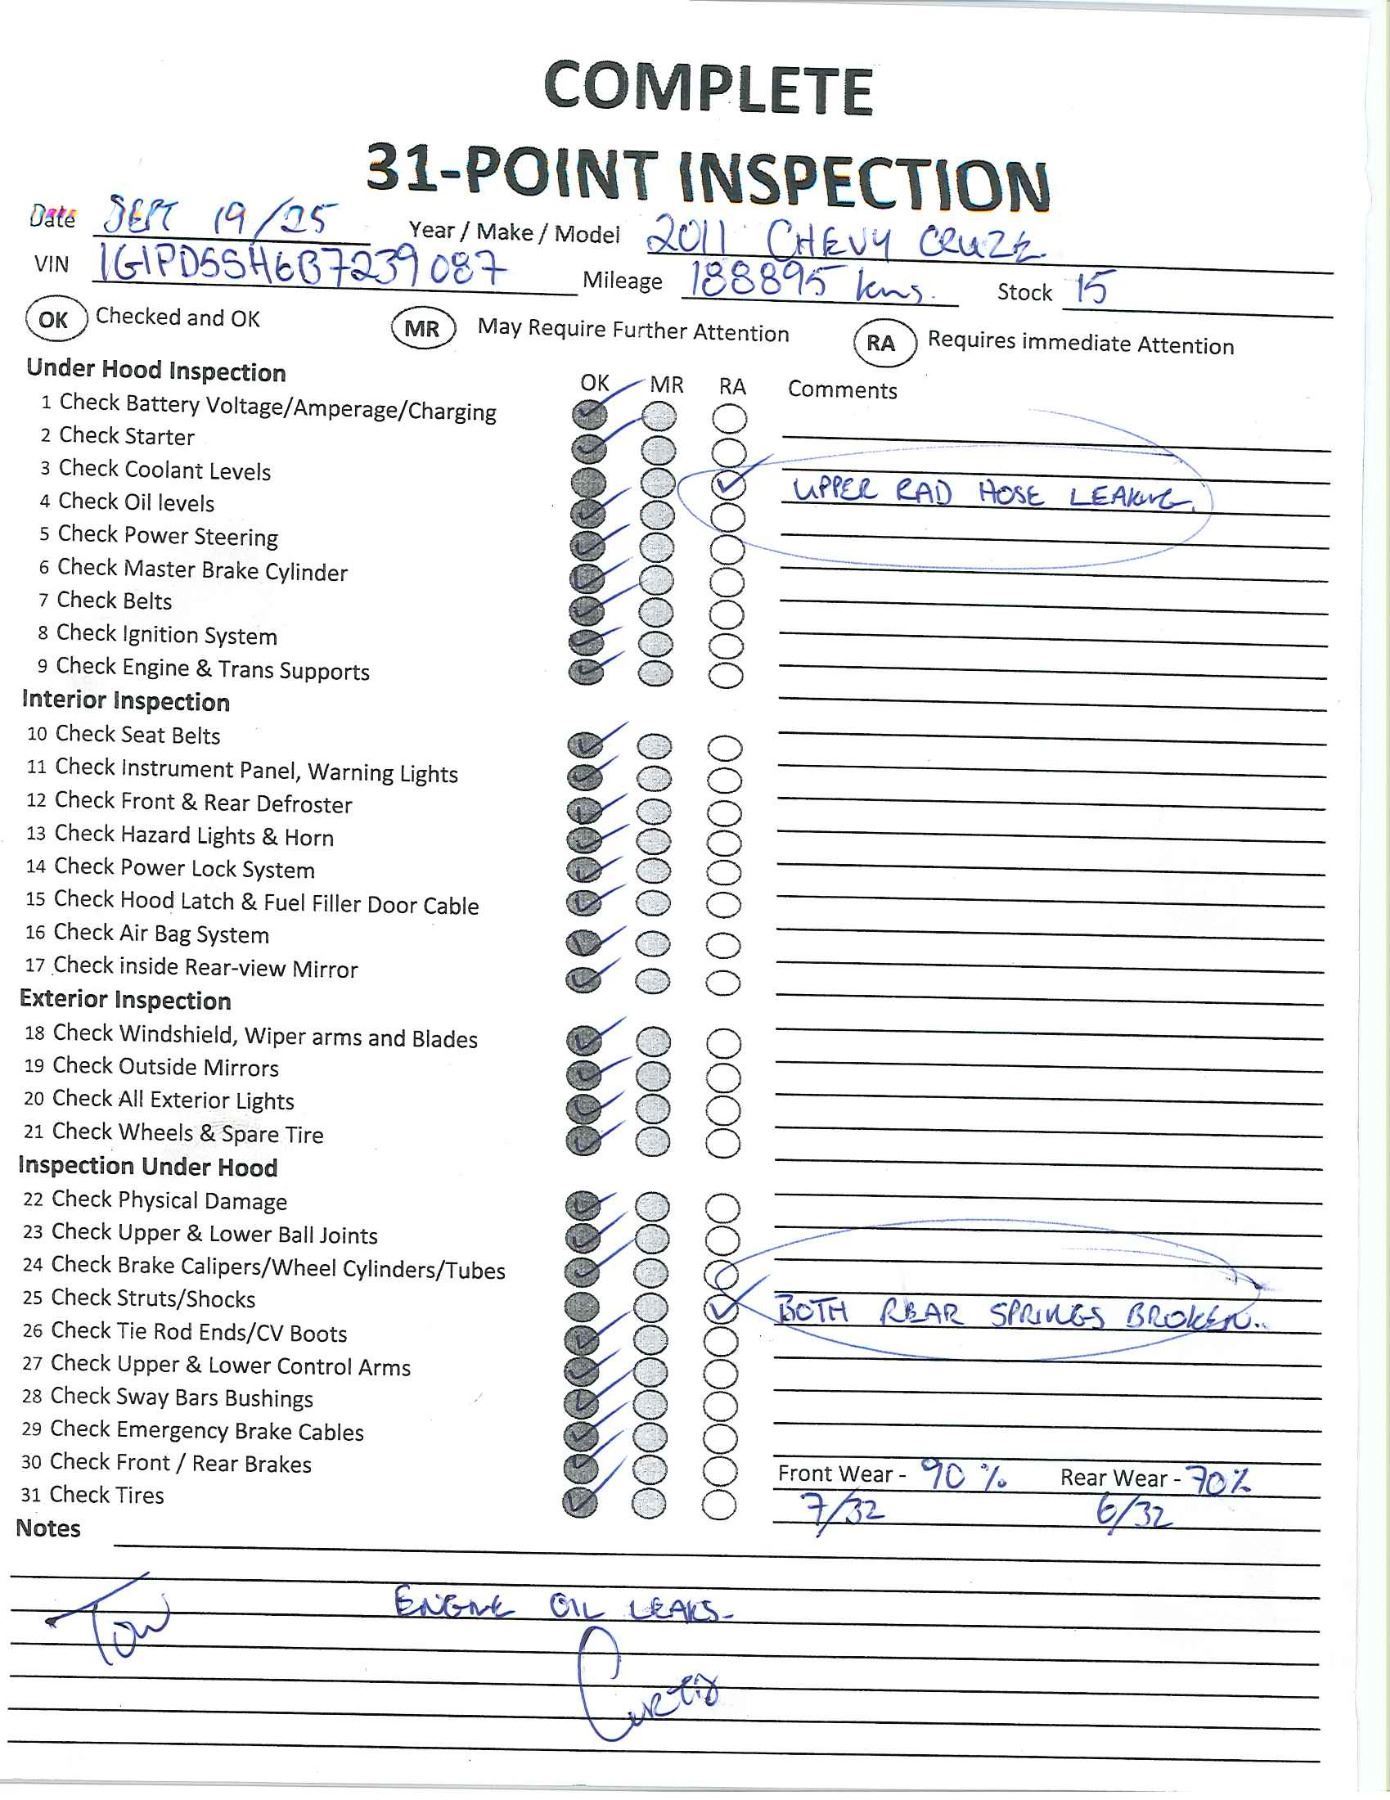 COMPLETE
31-POINT INSPECTION
Date SEPT 19/25 Year / Make / Model 2011 CHEVY CRUZE
VIN 1G1PD5SH6B7239087 Mileage 188895 kms. Stock 15
OK Checked and OK MR May Require Further Attention RA Requires immediate Attention
Under Hood Inspection OK MR RA Comments
1 Check Battery Voltage/Amperage/Charging
2 Check Starter
3 Check Coolant Levels UPPER RAD HOSE LEAKING.
4 Check Oil levels
5 Check Power Steering
6 Check Master Brake Cylinder
7 Check Belts
8 Check Ignition System
9 Check Engine & Trans Supports
Interior Inspection
10 Check Seat Belts
11 Check Instrument Panel, Warning Lights
12 Check Front & Rear Defroster
13 Check Hazard Lights & Horn
14 Check Power Lock System
15 Check Hood Latch & Fuel Filler Door Cable
16 Check Air Bag System
17 Check inside Rear-view Mirror
Exterior Inspection
18 Check Windshield, Wiper arms and Blades
19 Check Outside Mirrors
20 Check All Exterior Lights
21 Check Wheels & Spare Tire
Inspection Under Hood
22 Check Physical Damage
23 Check Upper & Lower Ball Joints
24 Check Brake Calipers/Wheel Cylinders/Tubes
25 Check Struts/Shocks BOTH REAR SPRINGS BROKEN..
26 Check Tie Rod Ends/CV Boots
27 Check Upper & Lower Control Arms
28 Check Sway Bars Bushings
29 Check Emergency Brake Cables
30 Check Front / Rear Brakes Front Wear - 90 % Rear Wear - 70%
31 Check Tires 7/32 6/32
Notes
ENGINE OIL LEAKS-
Curtis